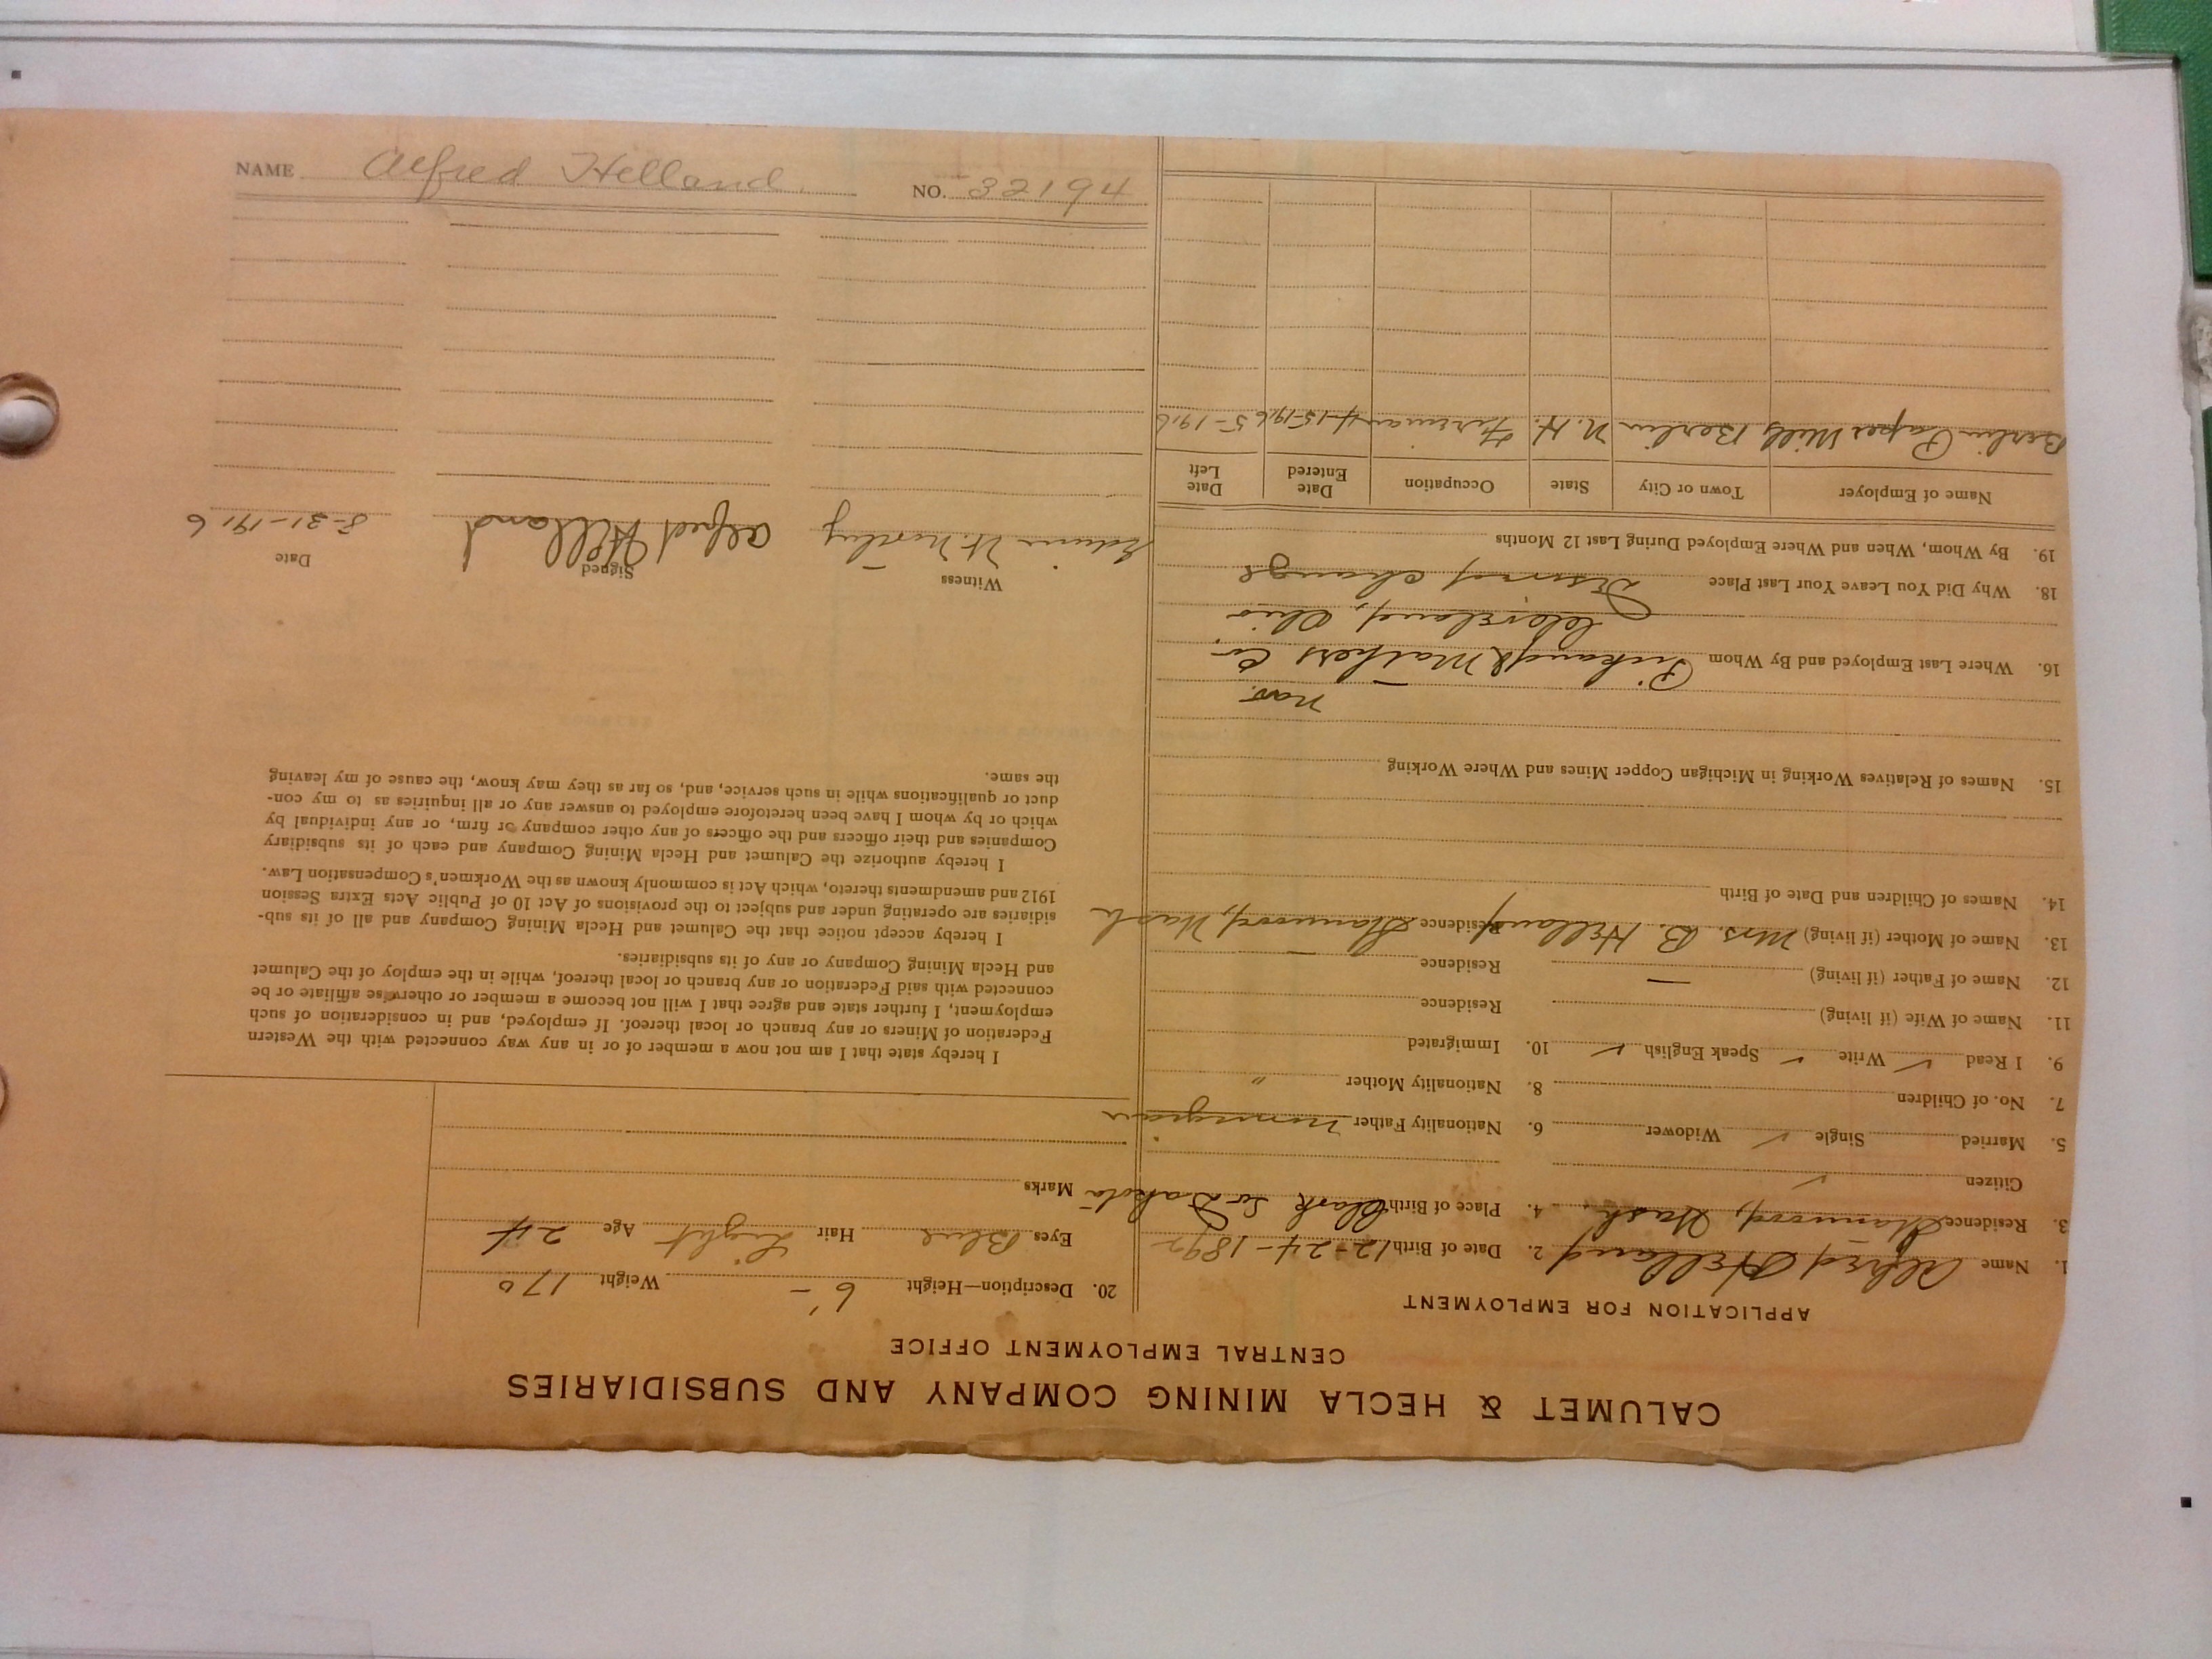 CALUMET & HECLA MINING COMPANY AND SUBSIDIARIES
CENTRAL EMPLOYMENT OFFICE
APPLICATION FOR EMPLOYMENT
1. Name Alfred Helland 2. Date of Birth 12-24-1892
3. Residence Stanwood, Wash. 4. Place of Birth Clark So Dakota
Citizen ✓
5. Married Single ✓ Widower 6. Nationality Father Norwegian
7. No. of Children 8. Nationality Mother "
9. I Read ✓ Write ✓ Speak English ✓ 10. Immigrated
11. Name of Wife (if living) Residence
12. Name of Father (if living) — Residence —
13. Name of Mother (if living) Mrs. B. Helland Residence Stanwood, Wash
14. Names of Children and Date of Birth
15. Names of Relatives Working in Michigan Copper Mines and Where Working
16. Where Last Employed and By Whom Pickands Mathers Co.
Cleveland, Ohio
18. Why Did You Leave Your Last Place Desired change
19. By Whom, When and Where Employed During Last 12 Months
Name of Employer Town or City State Occupation Date Entered Date Left
Berlin Paper Mills Berlin N. H. Fireman 4-15-1916 5-1916
20. Description—Height 6'- Weight 170
Eyes Blue Hair Light Age 24
Marks
I hereby state that I am not now a member of or in any way connected with the Western
Federation of Miners or any branch or local thereof. If employed, and in consideration of such
employment, I further state and agree that I will not become a member or otherwise affiliate or be
connected with said Federation or any branch or local thereof, while in the employ of the Calumet
and Hecla Mining Company or any of its subsidiaries.
I hereby accept notice that the Calumet and Hecla Mining Company and all of its sub-
sidiaries are operating under and subject to the provisions of Act 10 of Public Acts Extra Session
1912 and amendments thereto, which Act is commonly known as the Workmen's Compensation Law.
I hereby authorize the Calumet and Hecla Mining Company and each of its subsidiary
Companies and their officers and the officers of any other company or firm, or any individual by
which or by whom I have been heretofore employed to answer any or all inquiries as to my con-
duct or qualifications while in such service, and, so far as they may know, the cause of my leaving
the same.
Witness Signed Date
Alfred Helland 8-31-1916
NAME Alfred Helland. NO. 32194